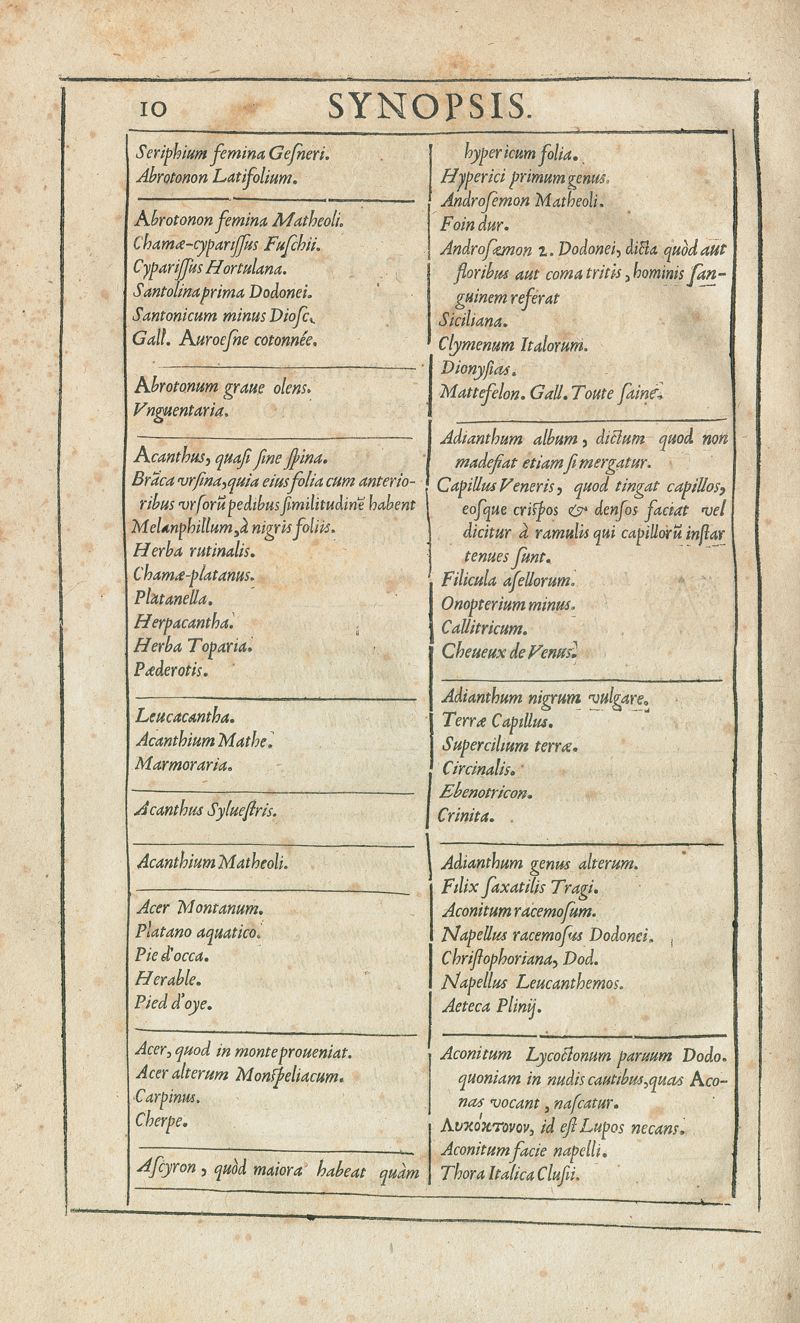 10
SYNOPSIS.
Seriphium femina Geſneri.
Abrotonon Latifolium.
Abrotonon femina Matheoli.
Chamæ-cypariſſus Fuſchii.
Cypariſſus Hortulana.
Santolina prima Dodonei.
Santonicum minus Dioſc.
Gall. Auroeſne cotonnée.
Abrotonum graue olens.
Vnguentaria.
Acanthus, quaſi ſine ſpina.
Brāca vrſina, quia eius folia cum anterio-
ribus vrſorū pedibus ſimilitudinē habent
Melanphillum, à nigris foliis.
Herba rutinalis.
Chamæ-platanus.
Platanella.
Herpacantha.
Herba Toparia.
Pæderotis.
Leucacantha.
Acanthium Mathe.
Marmoraria.
Acanthus Sylueſtris.
Acanthium Matheoli.
Acer Montanum.
Platano aquatico.
Pie d'occa.
Herable.
Pied d'oye.
Acer, quod in monte proueniat.
Acer alterum Monſpeliacum.
Carpinus.
Cherpe.
Aſcyron, quòd maiora habeat quàm
hypericum folia.
Hyperici primum genus.
Androſemon Matheoli.
Foin dur.
Androſæmon 2. Dodonei, dicta quòd aut
floribus aut coma tritis, hominis ſan-
guinem referat
Siciliana.
Clymenum Italorum.
Dionyſias.
Matteſelon. Gall. Toute ſaine.
Adianthum album, dictum quod non
madefiat etiam ſi mergatur.
Capillus Veneris, quod tingat capillos,
eoſque criſpos & denſos faciat vel
dicitur à ramulis qui capillorū inſtar
tenues ſunt.
Filicula aſellorum.
Onopterium minus.
Callitricum.
Cheueux de Venus.
Adianthum nigrum vulgare.
Terræ Capillus.
Supercilium terræ.
Circinalis.
Ebenotricon.
Crinita.
Adianthum genus alterum.
Filix ſaxatilis Tragi.
Aconitum racemoſum.
Napellus racemoſus Dodonei.
Chriſtophoriana, Dod.
Napellus Leucanthemos.
Aeteca Plinij.
Aconitum Lycoctonum paruum Dodo.
quoniam in nudis cautibus, quas Aco-
nas vocant, naſcatur.
Λυκόκτονον, id eſt Lupos necans.
Aconitum facie napelli.
Thora Italica Cluſii.